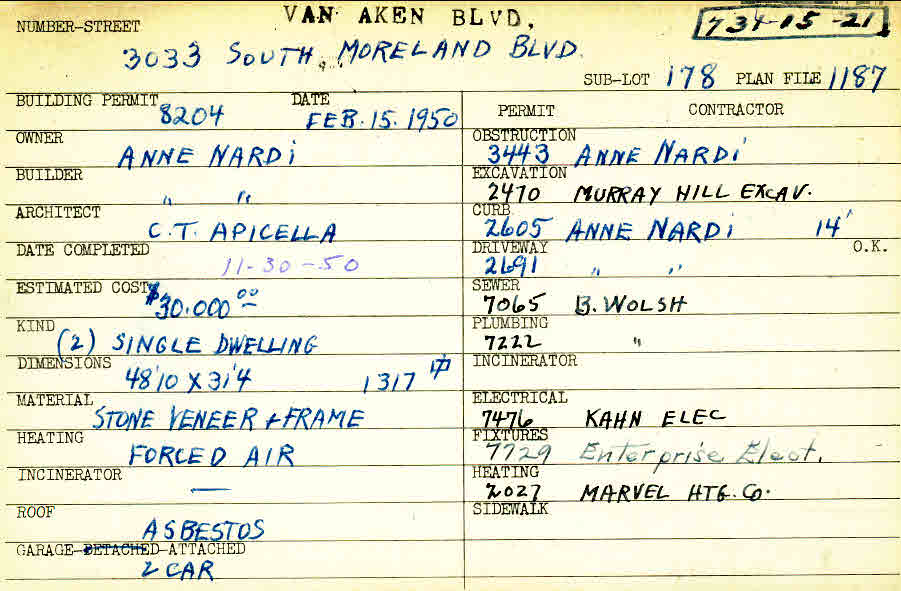 VAN AKEN BLVD.
734-15-21
NUMBER-STREET
3033 SOUTH MORELAND BLVD.
SUB-LOT 178 PLAN FILE 1187
BUILDING PERMIT 8204 DATE FEB. 15. 1950
OWNER
ANNE NARDi
BUILDER
" "
ARCHITECT
C.T. APICELLA
DATE COMPLETED
11-30-50
ESTIMATED COST
$30.000 00
KIND
(2) SINGLE DWELLING
DIMENSIONS
48'10 X 31'4 1317
MATERIAL
STONE VENEER + FRAME
HEATING
FORCED AIR
INCINERATOR
—
ROOF
ASBESTOS
GARAGE-DETACHED-ATTACHED
2 CAR
PERMIT CONTRACTOR
OBSTRUCTION
3443 ANNE NARDi
EXCAVATION
2470 MURRAY HILL EXCAV.
CURB
2605 ANNE NARDi 14'
DRIVEWAY O.K.
2691 " "
SEWER
7065 B. WOLSH
PLUMBING
7222 "
INCINERATOR
ELECTRICAL
7476 KAHN ELEC
FIXTURES
7729 Enterprise Elect.
HEATING
2027 MARVEL HTG. Co.
SIDEWALK